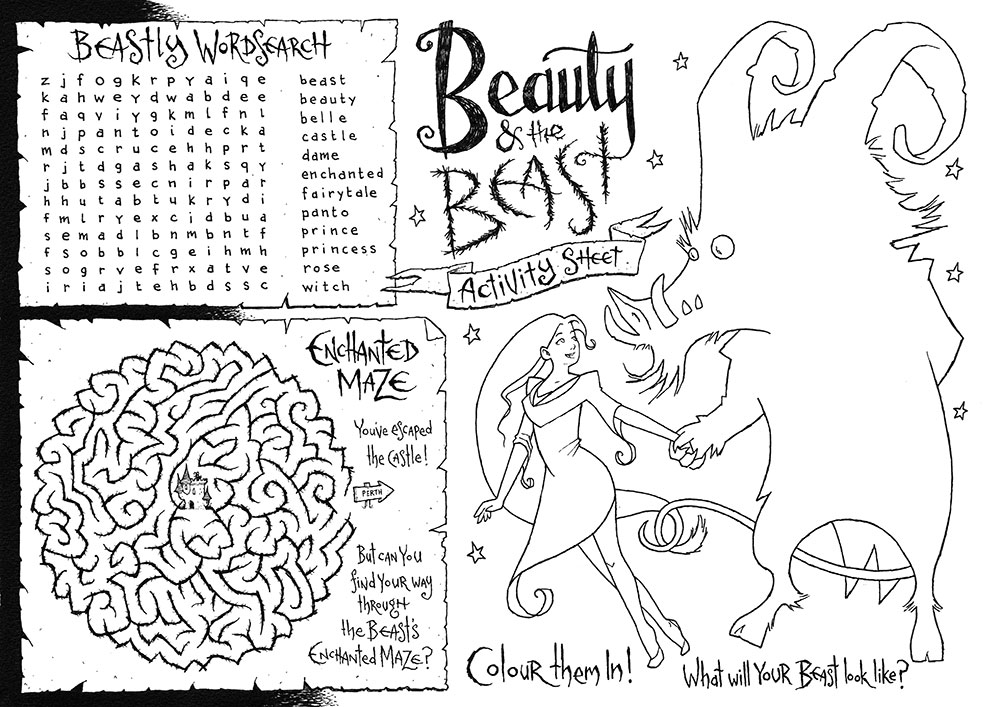 BEASTLY WORDSEARCH
z j f o g k r p y a i q e
k a h w e y d w a b d e e
f a q v i y g k m l f n l
n j p a n t o i d e c k a
m d s c r u c e h h p r t
r j t d g a s h a k s q y
j b b s s e c n i r p a r
h h u t a b t u k r y d i
f m l r y e x c i d b u a
s e m a d l b n m b n t f
f s o b b l c g e i h m h
s o g r v e f r x a t v e
i r i a j t e h b d s s c
beast
beauty
belle
castle
dame
enchanted
fairytale
panto
prince
princess
rose
witch
Beauty
& the
BEAST
ACTIVITY SHEET
ENCHANTED
MAZE
You've escaped
the castle!
PERTH
But can you
find your way
through
the BEAST'S
ENCHANTED MAZE?
Colour them In!
What will YOUR BEAST look like?